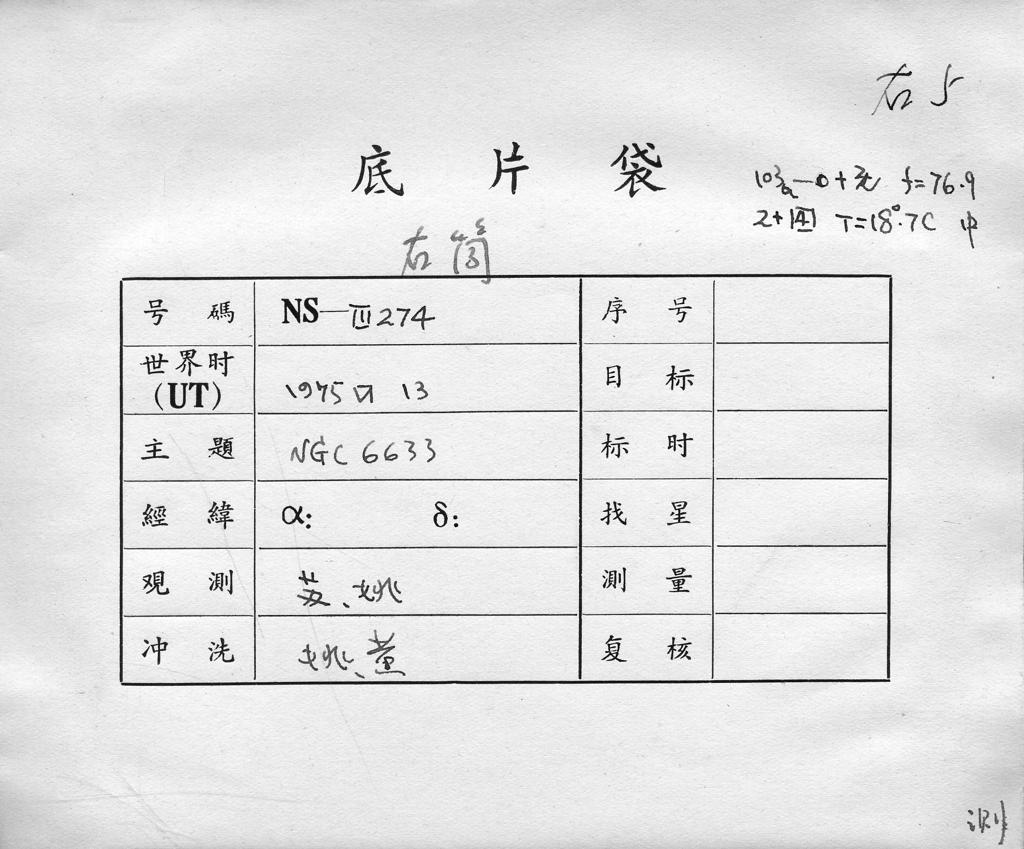 右 5
底 片 袋
f=76.9
T=18°.7C 中
右筒
号 碼 NS—Ⅲ274 序 号
世界时 (UT) 1975 Ⅵ 13 目 标
主 題 NGC 6633 标 时
經 緯 α: δ: 找 星
观 測 姚 測 量
冲 洗 姚、黄 复 核
测